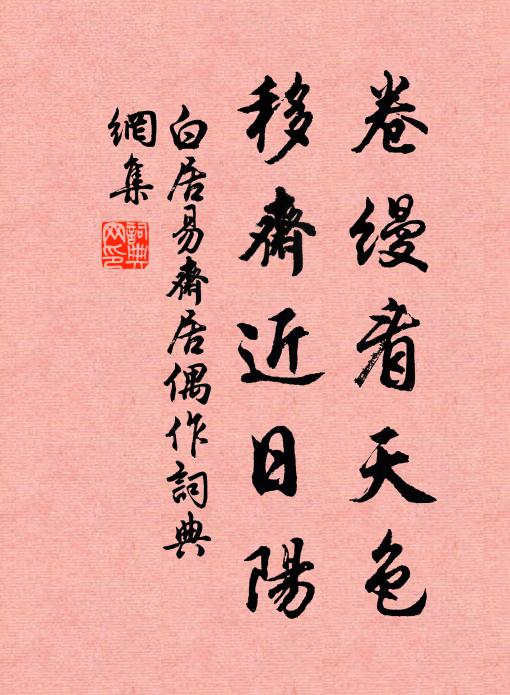 卷縵看天色
移齋近日陽
白居易齋居偶作詞典
網集
詞典網印